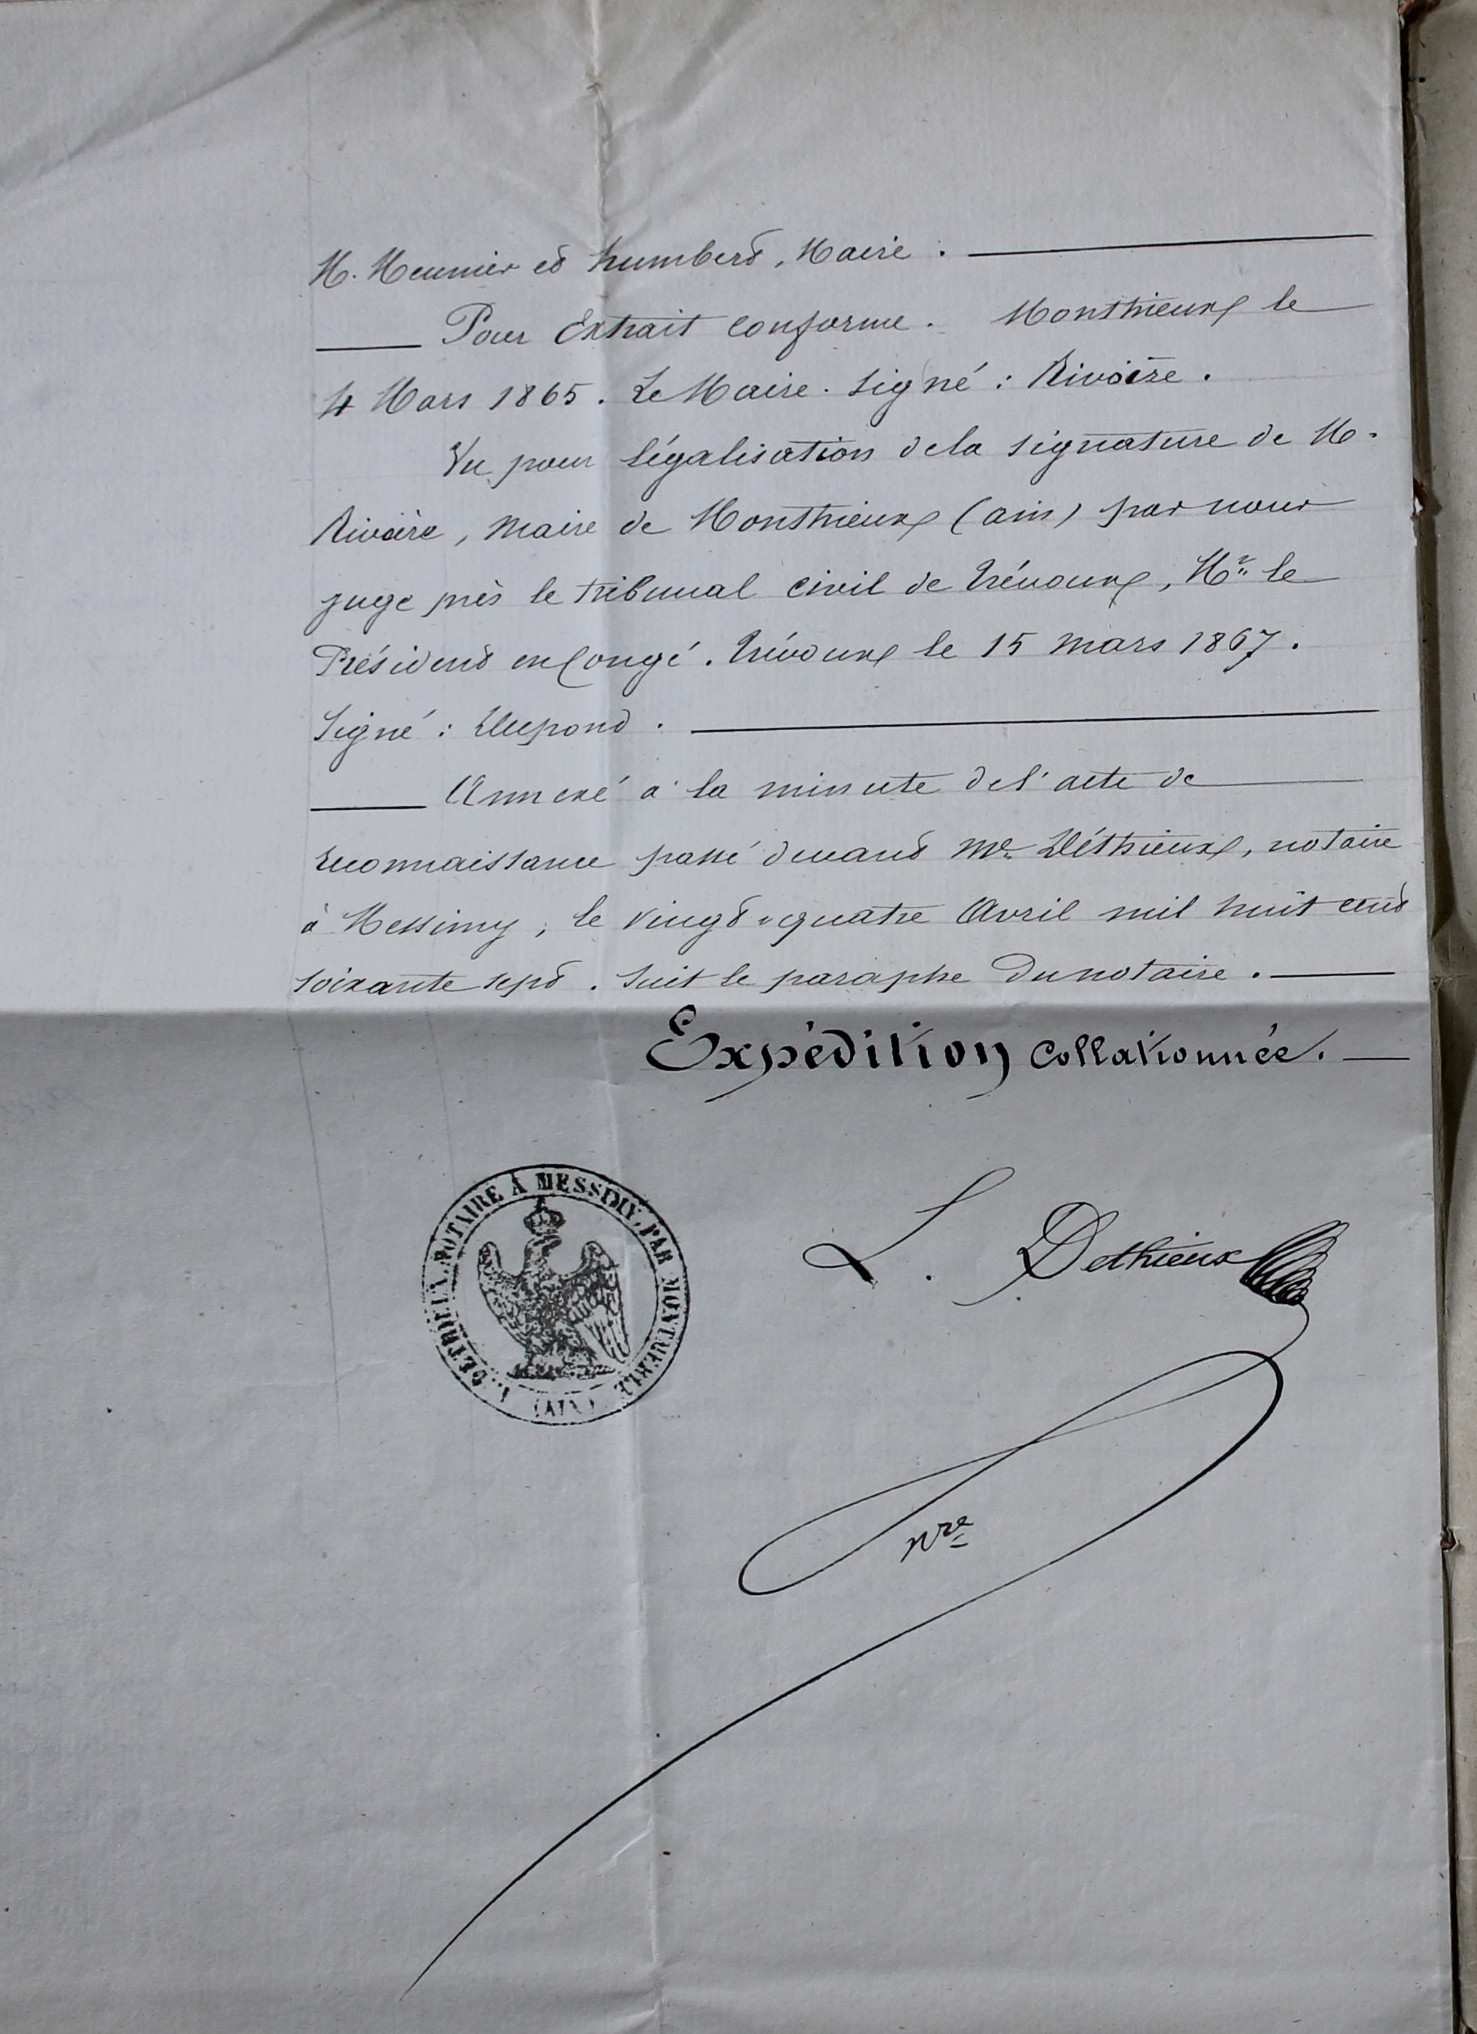 M. Meunier et humbert, Maire.
Pour Extrait conforme. Monthieux le
4 Mars 1865. Le Maire. Signé : Rivoire.
Vu pour légalisation de la signature de M.
Rivoire, Maire de Monthieux (ain) par nous
juge près le tribunal civil de Trévoux, Mr. le
Président en Congé. Trévoux le 15 mars 1867.
Signé : Dupond.
Annexé à la minute de l'acte de
reconnaissance passé devant Me Déthieux, notaire
à Messimy, le vingt-quatre Avril mil huit cent
soixante sept. Suit le paraphe du notaire.
Expédition collationnée.
L. DETHIEUX, NOTAIRE À MESSIMY, PAR MONTMERLE (AIN)
L. Dethieux
nre